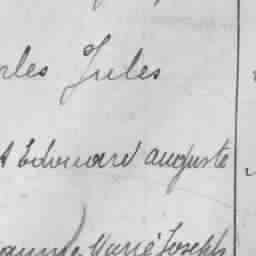 rles Jules
t Edouard auguste
Marie Joseph